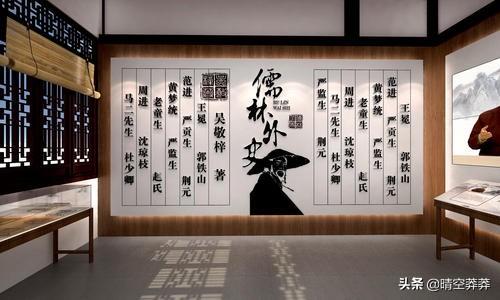 王冕 郭铁山
范进 严贡生 荆元
黄梦统 严监生
老童生 赵氏
周进 沈琼枝
马二先生 杜少卿
严监生 荆元
儒林外史
RU LIN
WAI SHI
吴敬梓 著
王冕 郭铁山
范进 严贡生 荆元
黄梦统 严监生
老童生 赵氏
周进 沈琼枝
马二先生 杜少卿
头条 @晴空莽莽